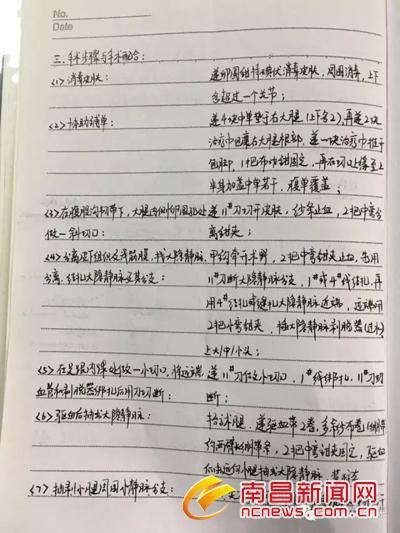 No.
Date
三. 手术步骤与手术配合:
<1> 消毒皮肤: 递卵圆钳持碘伏消毒皮肤, 周围消毒, 上下
各超过一个关节;
<2> 协助铺单: 递4块中单垫于右大腿(上下各2), 再递2块
治疗巾包裹右大腿根部, 递一块治疗巾推于
包脚, 1把布巾钳固定, 再在切口缘至上
半身加盖中单若干, 腹单覆盖;
<3> 在腹股沟韧带下, 大腿内侧卵圆孔处 递11#刀切开皮肤, 纱条止血, 2把中弯
做一斜切口: 离钳夹;
<4> 分离皮下组织及浅筋膜, 找大隐静脉 甲钩牵开术野, 2把中弯钳止血, 每用
分离, 结扎大隐静脉及其分支: 11#刀断大隐静脉分支, 1#或4#线结扎. 再
用4#线扎或缝扎大隐静脉近端, 远端用
2把中弯钳夹, 插大隐静脉剥脱器(过水)
上大1中1小头;
<5> 在足踝内侧处做一小切口, 将远端 递11#刀做小切口, 1#线绑扎, 11#刀切
血管和剥脱器绑扎后用刀切断: 断;
<6> 驱血后抽出大隐静脉: 抬高术腿, 递驱血带2卷,
2把中弯钳夹固定, 驱血
后由远向小腿抽出大隐静脉
<7> 抽剥小腿周围小静脉分支:
南昌新闻网
ncnews.com.cn